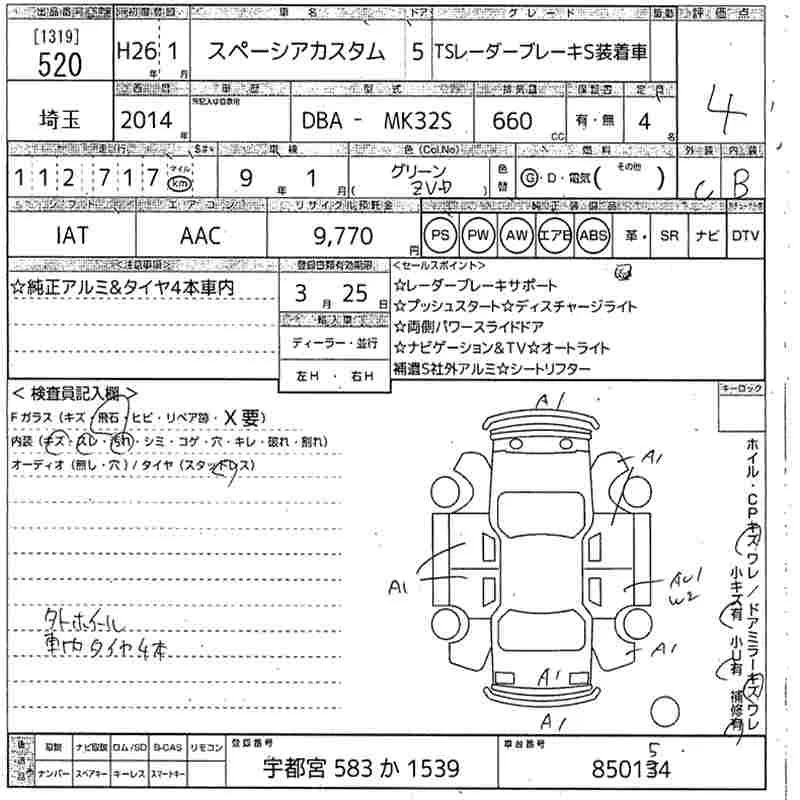 出品番号 初度登録 車名 ドア グレード 評価点
[1319]
520
H26年 1月
スペーシアカスタム
5
TSレーダーブレーキS装着車
4
西暦 車歴 型式 排気量 保証書 定員
埼玉
2014年
DBA - MK32S
660cc
有・無
4名
走行 車検 色(Col.No) 燃料 外装 内装
112717 マイル km
9年 1月
グリーン
ZVD
色替
G・D・電気( その他 )
C
B
シフト エアコン リサイクル預託金 純正装備品
IAT
AAC
9,770円
PS PW AW エアB ABS 革・ SR ナビ DTV
<注意事項>
☆純正アルミ&タイヤ4本車内
登録書類有効期限
3月 25日
輸入車
ディーラー・並行
左H・右H
<セールスポイント>
☆レーダーブレーキサポート
☆プッシュスタート☆ディスチャージライト
☆両側パワースライドドア
☆ナビゲーション&TV☆オートライト
補遺S社外アルミ☆シートリフター
<検査員記入欄>
Fガラス(キズ・飛石・ヒビ・リペア跡・X要)
内装(キズ・スレ・汚れ・シミ・コゲ・穴・キレ・破れ・割れ)
オーディオ(無し・穴)/タイヤ(スタッドレス)
キーロック
ホイル・CPキズワレ/ドアミラーキズワレ
小キズ有 小U有 補修有
A1
A1
A1
AU1
W2
A1
A1
A1
外ホイール
車内タイヤ4本
取説 ナビ取説 ロム/SD B-CAS リモコン
ナンバー スペアキー キーレス スマートキー
登録番号
宇都宮 583 か 1539
車台番号
5
850134